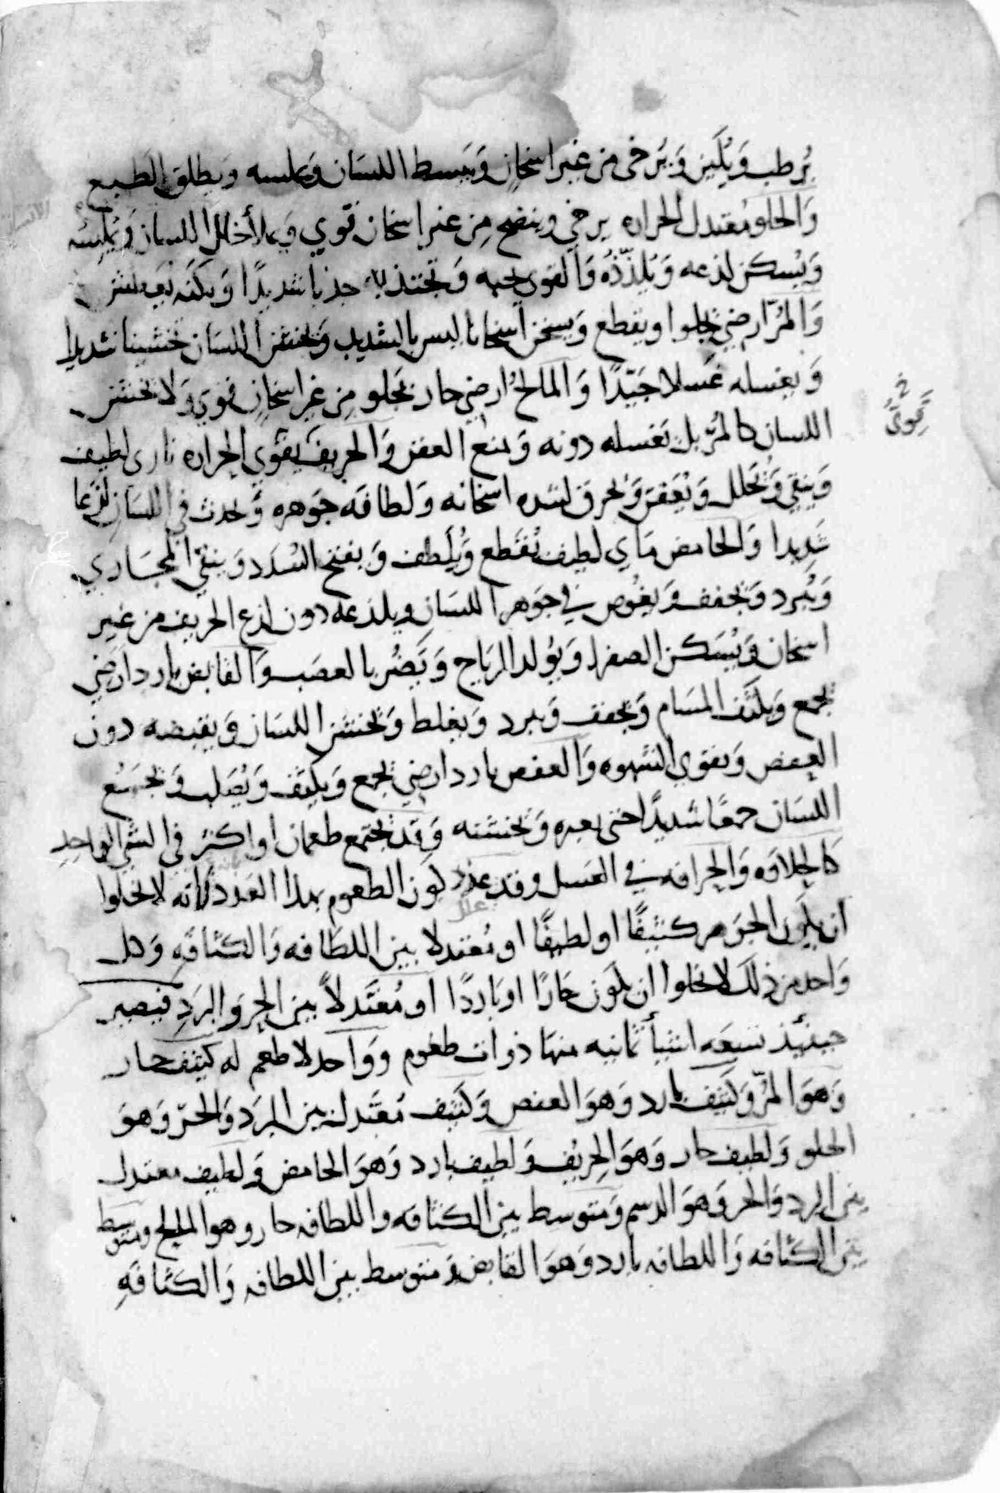 يُرطب وَيُليّن وَيرخى من غير اسخان وَيبسط اللسان ويملسه ويطلق الطبع
وَالحلو معتدل الحراره يرخي وينضج مِن غير إسخان قوي ويملأ خلل اللسان وَيُليّنه
وَيُسكن لذعه وَيُلذّذُه وَالقوى تحبه وَتجتذبه جذبا شديدًا
وَالمُرّ ارضي يجلوا ويقطع وَيسخن اسخانا ليس بالشديد وَيخشن اللسان تخشينا شديدا
وَيغسله غَسلا جَيّدًا وَالمالح ارضي حار يجلو مِن غير اسخان قوي وَلا يخشن
اللسان كالمُرّ بل يَغسله دونه وَيمنع العفن وَالحريف يقوّي الحراره نارى لطيف
وَينقي وَيُحلل وَيُعفن وَيُحرق لشده اسخانه وَلطافَه جَوهره وَيُحدث في اللسان لذعا
شَدِيدا وَالحامض مَاي لطيف يُقَطع وَيُلَطف وَيفتح السُدَد وَينقي المجَاري
وَيُبرد وَيجفف وَيغُوص في جَوهر اللسان ويلذعه دون لذع الحريف من غير
اسخان وَيُسَكن الصفرا وَيُولد الرِيَاح وَيَضُر بالعصَب وَالقابض بارد ارضي
يجمع وَيكثّف المسَام وَيجفف وَيبرد وَيغلظ وَيخشن اللسان وَيقبضه دون
العفص وَيقوى الشهوه وَالعفص بارد ارضي يجمع وَيكثف وَيُصَلب وَيجمعُ
اللسان جمعًا شديدًا حتى يعصره وَيخشنه وَقد يجتمع طعمان او اكثر فى الشي الواحد
كَالحلاوه وَالحرافه في العَسل وقد علل كون الطعوم بهذا العدد بانه لا يخلوا
ان يكون الجَوهر كثيفًا او لطيفًا او مُعتدلا بين اللطافه وَالكثافَهِ وَكل
وَاحد من ذلك لا يخلوا ان يكون حَارًا او بَاردًا او مُعتَدلاً بين الحر وَالبردِ فيصير
حينئذ تسعَه اشيا ثمانيه منها ذوات طعُوم وَوَاحد لا طعم له كثيف حار
وَهوَ المرّ وَكثيف بارد وَهوَ العفص وَكثيف مُعتَدل بين البرد وَالحرّ وَهوَ
الحلو وَلطيف حار وَهوَ الحِريف وَلطيف بارد وَهوَ الحامض وَلطيف معتدل
بين البرد وَالحر وَهوَ الدسم وَمتوسط بين الكثافه واللطافه حار وهوا المالح ومتوسط
بين الكثافه وَاللطافه بارد وَهوَ القابض وَمتوسط بين اللطافه وَالكثافَهِ